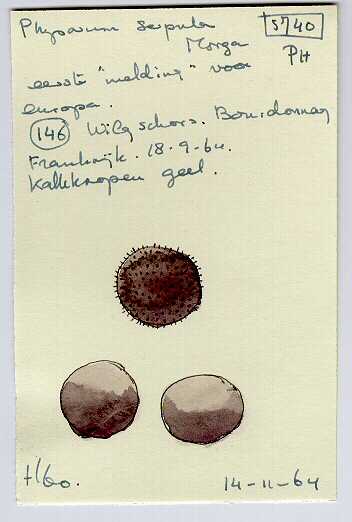 Physarum serpula 5740
Morga PH
eerste "melding" voor
europa.
146 Wilg schors. Bourdonnay
Frankrijk. 18-9-64.
Kalkknopen geel.
14-11-64